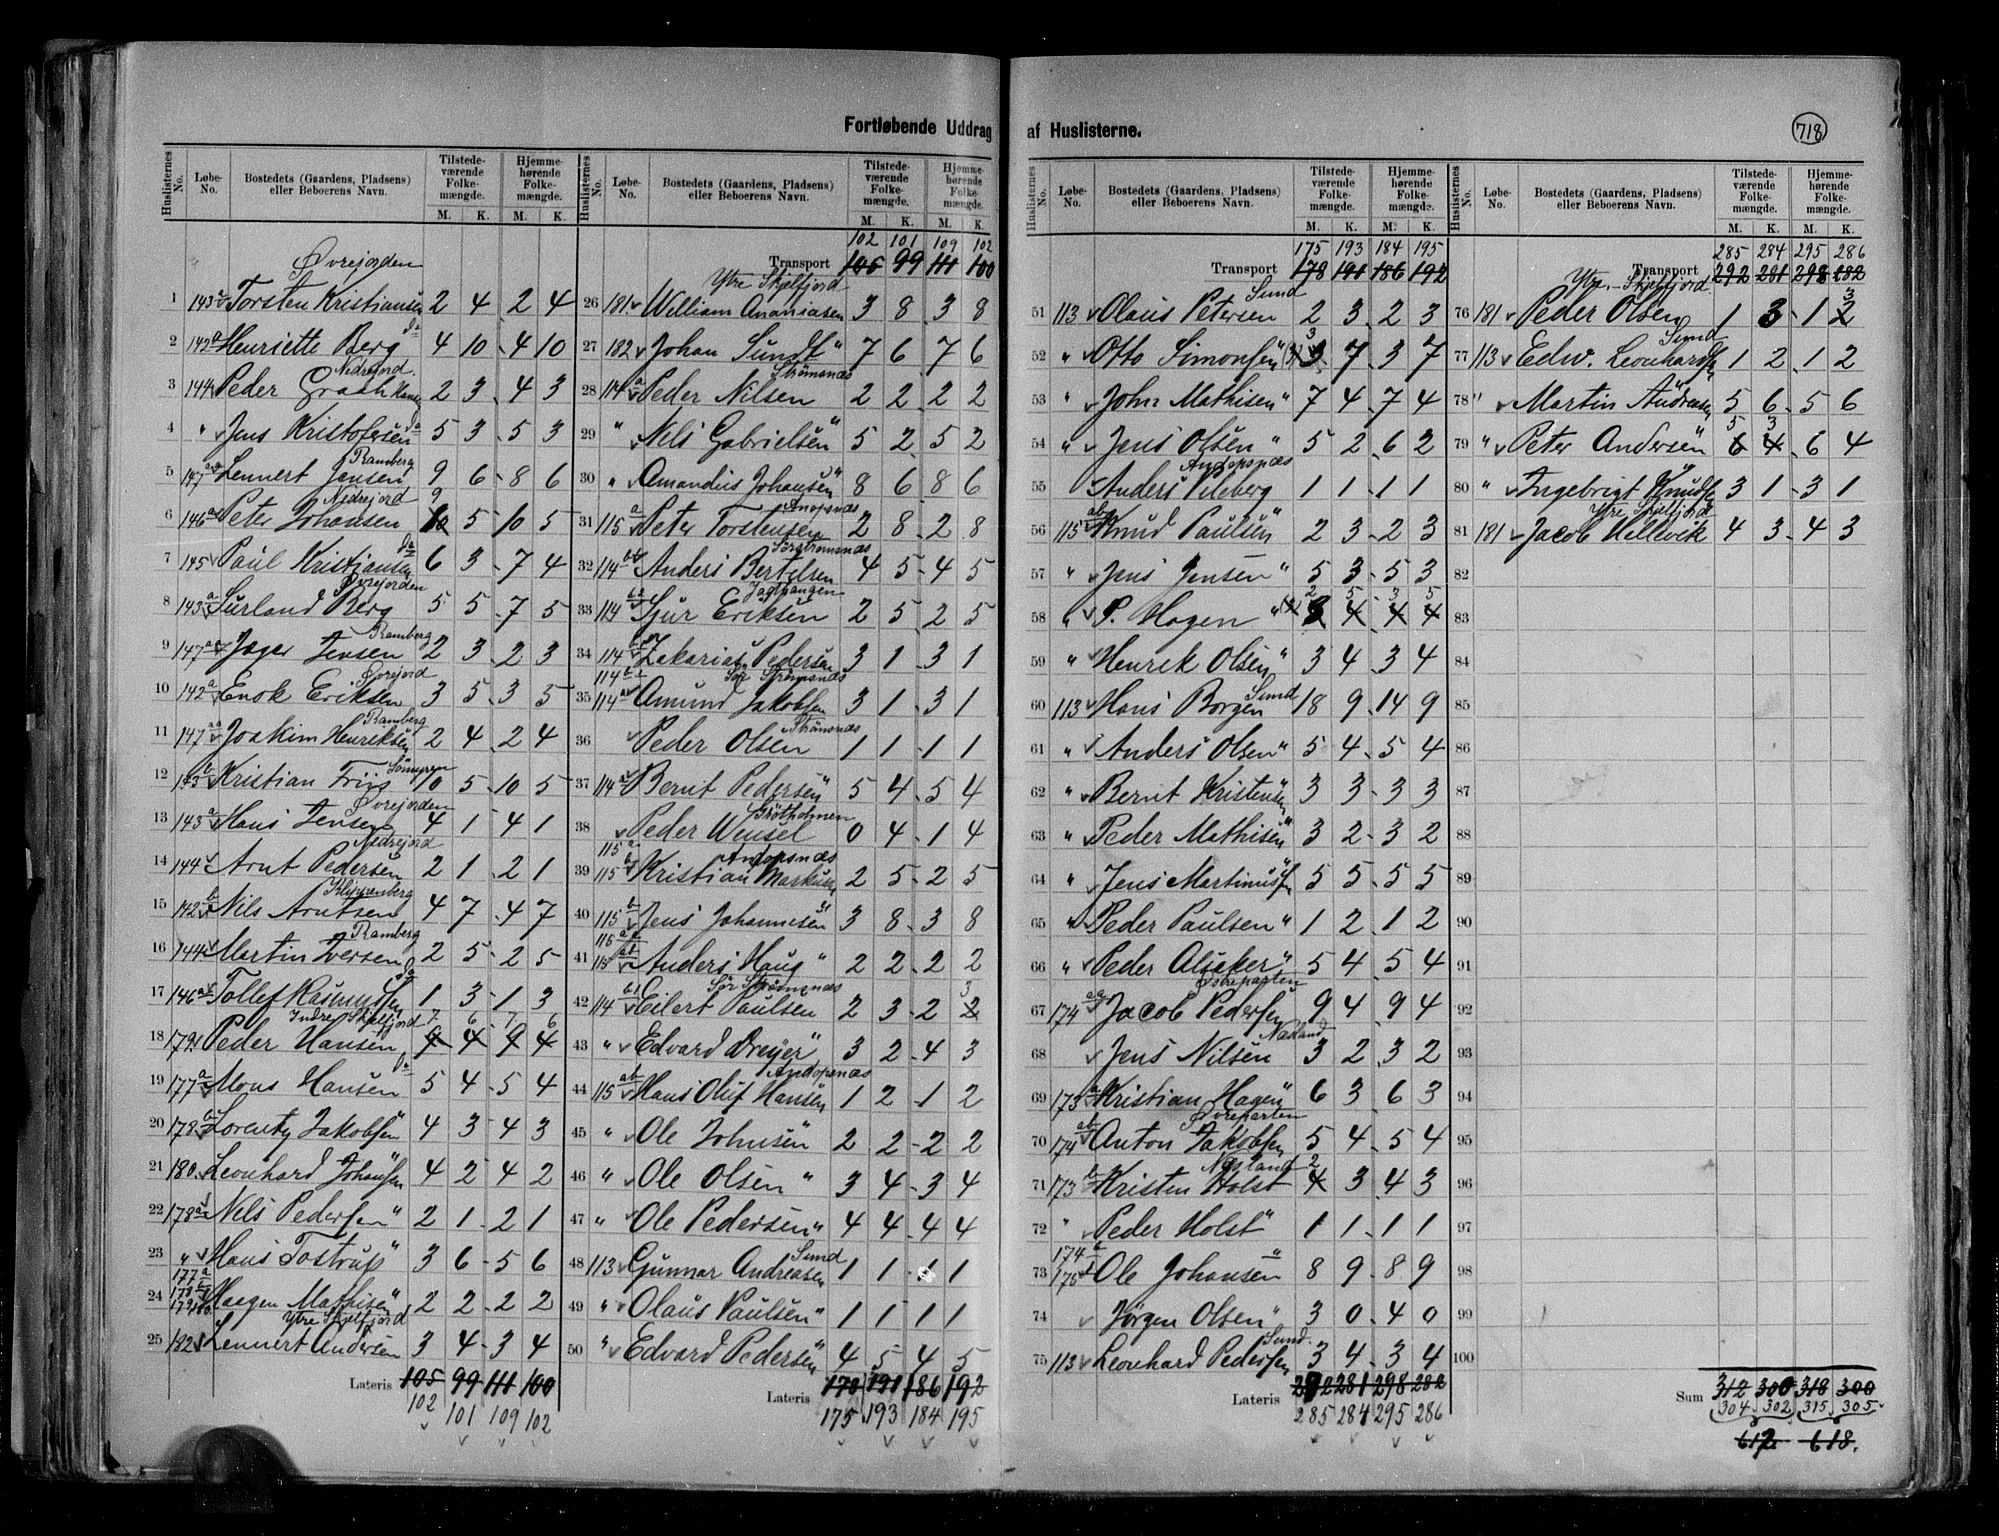 Fortløbende Uddrag af Huslisterne.
718
Huslisternes No. Løbe-No. Bostedets (Gaardens, Pladsens) eller Beboerens Navn. Tilstedeværende Folkemængde. M. K. Hjemmehørende Folkemængde. M. K.
Øvrejorden
1 143 Torsten Kristiansen 2 4 2 4
2 142a Henriette Berg do 4 10 4 10
Nedrejord.
3 144 Peder Graah Hansen 2 3 4 3
4 " Jens Kristofersen do 5 3 5 3
Ramberg
5 147 Lennert Jensen 9 6 8 6
Nedrejord
6 146a Peter Johansen 9 10 5 10 5
7 145 Paul Kristiansen do 6 3 7 4
Øvrejorden
8 143a Surland Berg 5 5 7 5
Ramberg
9 147 Jøger Jensen 2 3 2 3
Øvrejord
10 142a Enok Eriksen 3 5 3 5
Ramberg
11 147 Joakim Henriksen 2 4 2 4
12 173b Kristian Friis 10 5 10 5
Øvrejorden
13 143a Hans Jensen 4 1 4 1
Nedrejord
14 144 Arnt Pedersen 2 1 2 1
15 142b Nils Arntsen 4 7 4 7
Ramberg
16 144 Martin Iversen 2 5 2 5
17 146a Tollef Rasmussen do 1 3 1 3
Indre Skjelfjord 7 6 7 6
18 179 Peder Hansen 9 4 9 4
19 177a Mons Hansen do 5 4 5 4
20 178b Lorentz Jakobsen 4 3 4 3
21 180 Leonhard Johansen 4 2 4 2
22 178a Nils Pedersen " 2 1 2 1
23 " Hans Tostrup " 3 6 5 6
24 177a 178b 179 180 Haagen Mathisen " 2 2 2 2
Ytre Skjelfjord
25 182 Lennert Andersen 3 4 3 4
Lateris 105 99 111 100
102 101 109 102
102 101 109 102
Transport 105 99 111 100
Ytre Skjelfjord
26 181 William Ananiasen 3 8 3 8
27 182 Johan Sundt " 7 6 7 6
Strømsnæs
28 114a Peder Nilsen 2 2 2 2
29 " Nils Gabrielsen " 5 2 5 2
30 " Amandus Johansen " 8 6 8 6
Anopsnæs
31 115a Peter Torstensen 2 8 2 8
Sørstrømsnæs
32 114 Anders Bertelsen 4 5 4 5
33 114 Sjur Eriksen 2 5 2 5
34 114 Zakarias Pedersen 3 1 3 1
Sør Strømsnæs
35 114 Amund Jakobsen 3 1 3 1
Strømsnæs
36 Peder Olsen 1 1 1 1
37 114a Bernt Pedersen " 5 4 5 4
38 Peder Wensel 0 4 1 4
Andopsnæs
39 115a 115b Kristian Markusen 2 5 2 5
40 115b Jens Johannesen " 3 8 3 8
41 Anders Haug " 2 2 2 2
Sør Strømsnæs
42 114 Eilert Paulsen 2 3 2 3 2
43 " Edvard Dreyer " 3 2 4 3
Andopsnæs
44 115ab Hans Oluf Hansen 1 2 1 2
45 " Ole Johnsen " 2 2 2 2
46 " Ole Olsen " 3 4 3 4
47 " Ole Pedersen " 4 4 4 4
Sund
48 113 Gunnar Andreasen 1 1 1 1
49 " Olaus Paulsen " 1 1 1 1
50 " Edvard Pedersen " 4 5 4 5
Lateris 178 191 186 192
175 193 184 195
175 193 184 195
Transport 178 191 186 192
Sund
51 113 Olaus Petersen 2 3 2 3
52 " Otto Simonsen " 3 7 3 7
53 " John Mathisen " 7 4 7 4
54 " Jens Olsen " 5 2 6 2
Andopsnæs
55 Anders Vileberg 1 1 1 1
56 115ab Knud Paulsen " 2 3 2 3
57 " Jens Jensen " 5 3 5 3
2 5 3 5
58 " P. Hagen " 3 4 4 4
59 " Henrik Olsen " 3 4 3 4
60 113 Hans Borgen Sund 18 9 14 9
61 " Anders Olsen " 5 4 5 4
62 " Bernt Kristensen 3 3 3 3
63 " Peder Mathisen " 3 2 3 2
64 " Jens Martinussen 5 5 5 5
65 " Peder Paulsen " 1 2 1 2
66 " Peder Alsaker " 5 4 5 4
67 174 Jacob Pedersen 9 4 9 4
Næsland
68 Jens Nilsen 3 2 3 2
69 173a Kristian Hagen " 6 3 6 3
Øvreparten
70 174ab Anton Jakobsen 5 4 5 4
Næsland 2
71 173b Kristen Holst 4 3 4 3
72 " Peder Holst " 1 1 1 1
73 174b 175 Ole Johansen " 8 9 8 9
74 Jørgen Olsen " 3 0 4 0
75 113 Leonhard Pedersen Sund. 3 4 3 4
Lateris 292 281 298 282
285 284 295 286
285 284 295 286
Transport 292 281 298 282
Ytre Skjelfjord.
76 181 Peder Olsen 1 3 1 3 2
Sund
77 113 Edw. Leonhardsen 1 2 1 2
78 " Martin Andreasen " 5 6 5 6
5 3
79 " Peter Andersen " 6 4 6 4
80 " Ingebrigt Knudsen " 3 1 3 1
Ytre Skjelfjord
81 181 Jacob Hellevik 4 3 4 3
82
83
84
85
86
87
88
89
90
91
92
93
94
95
96
97
98
99
100
Sum 312 300 318 300
304 302 315 305
612 618.